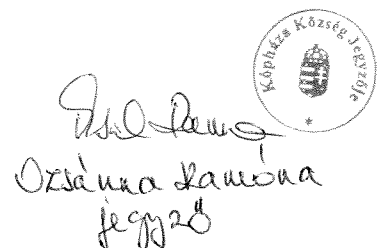 Kópháza Község Jegyzője
Ozsánna Ramóna
jegyző